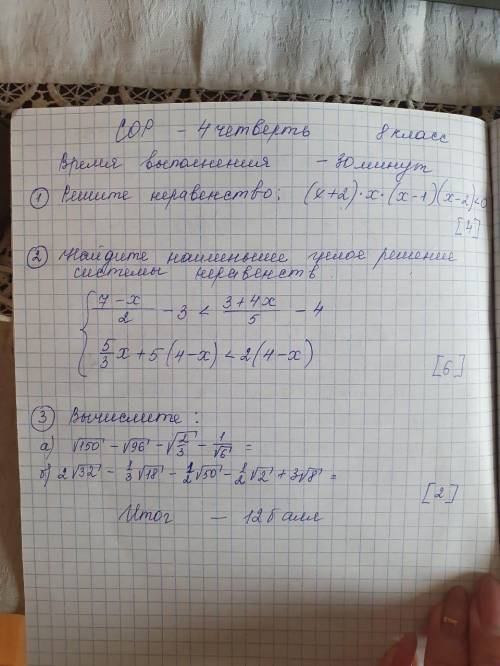 СОР – 4 четверть 8 класс
Время выполнения – 30 минут
① Решите неравенство: (x+2)·x·(x-1)(x-2)<0
[4]
② Найдите наименьшее целое решение
системы неравенств
{ (7-x)/2 - 3 < (3+4x)/5 - 4
5/3 x + 5(4-x) < 2(4-x)
[6]
③ Вычислите:
а) √150 - √96 - √(2/3) - 1/√6 =
б) 2√32 - 1/3 √18 - 1/2 √50 - 1/2 √2 + 3√8 =
[2]
Итог – 12 балл